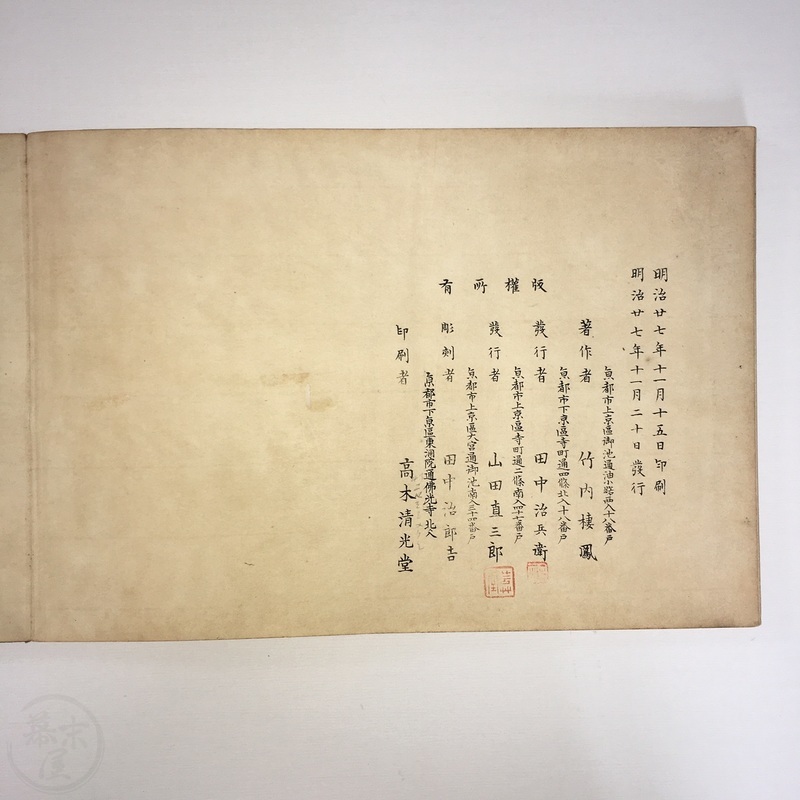 明治廿七年十一月十五日印刷
明治廿七年十一月二十日發行
版權所有
京都市上京區御池通油小路西入十八番戸
著作者 竹内棲鳳
京都市下京區寺町通四條北入十八番戸
發行者 田中治兵衛
京都市上京區寺町通二條南入四十七番戸
發行者 山田直三郎
京都市上京區大宮通御池南入三十四番戸
彫刻者 田中治郎吉
京都市下京區東洞院通佛光寺北入
印刷者 高木清光堂
幕末屋